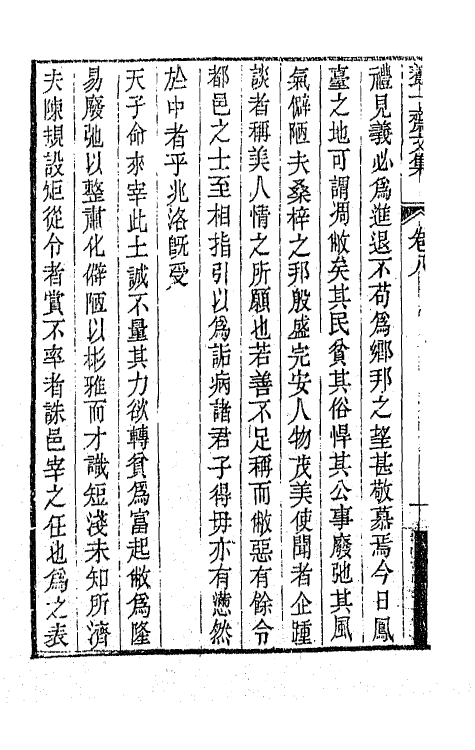 養一齋文集 卷八
禮見義必爲進退不苟爲鄉邦之望甚敬慕焉今日鳳
臺之地可謂凋敝矣其民貧其俗悍其公事廢弛其風
氣僻陋夫桑梓之邦殷盛完安人物茂美使聞者企踵
談者稱美人情之所願也若善不足稱而敝惡有餘令
都邑之士至相指引以爲詬病諸君子得毋亦有懣然
於中者乎兆洛旣受
天子命來宰此土誠不量其力欲轉貧爲富起敝爲隆
易廢弛以整肅化僻陋以彬雅而才識短淺未知所濟
夫陳規設矩從令者賞不率者誅邑宰之任也爲之表